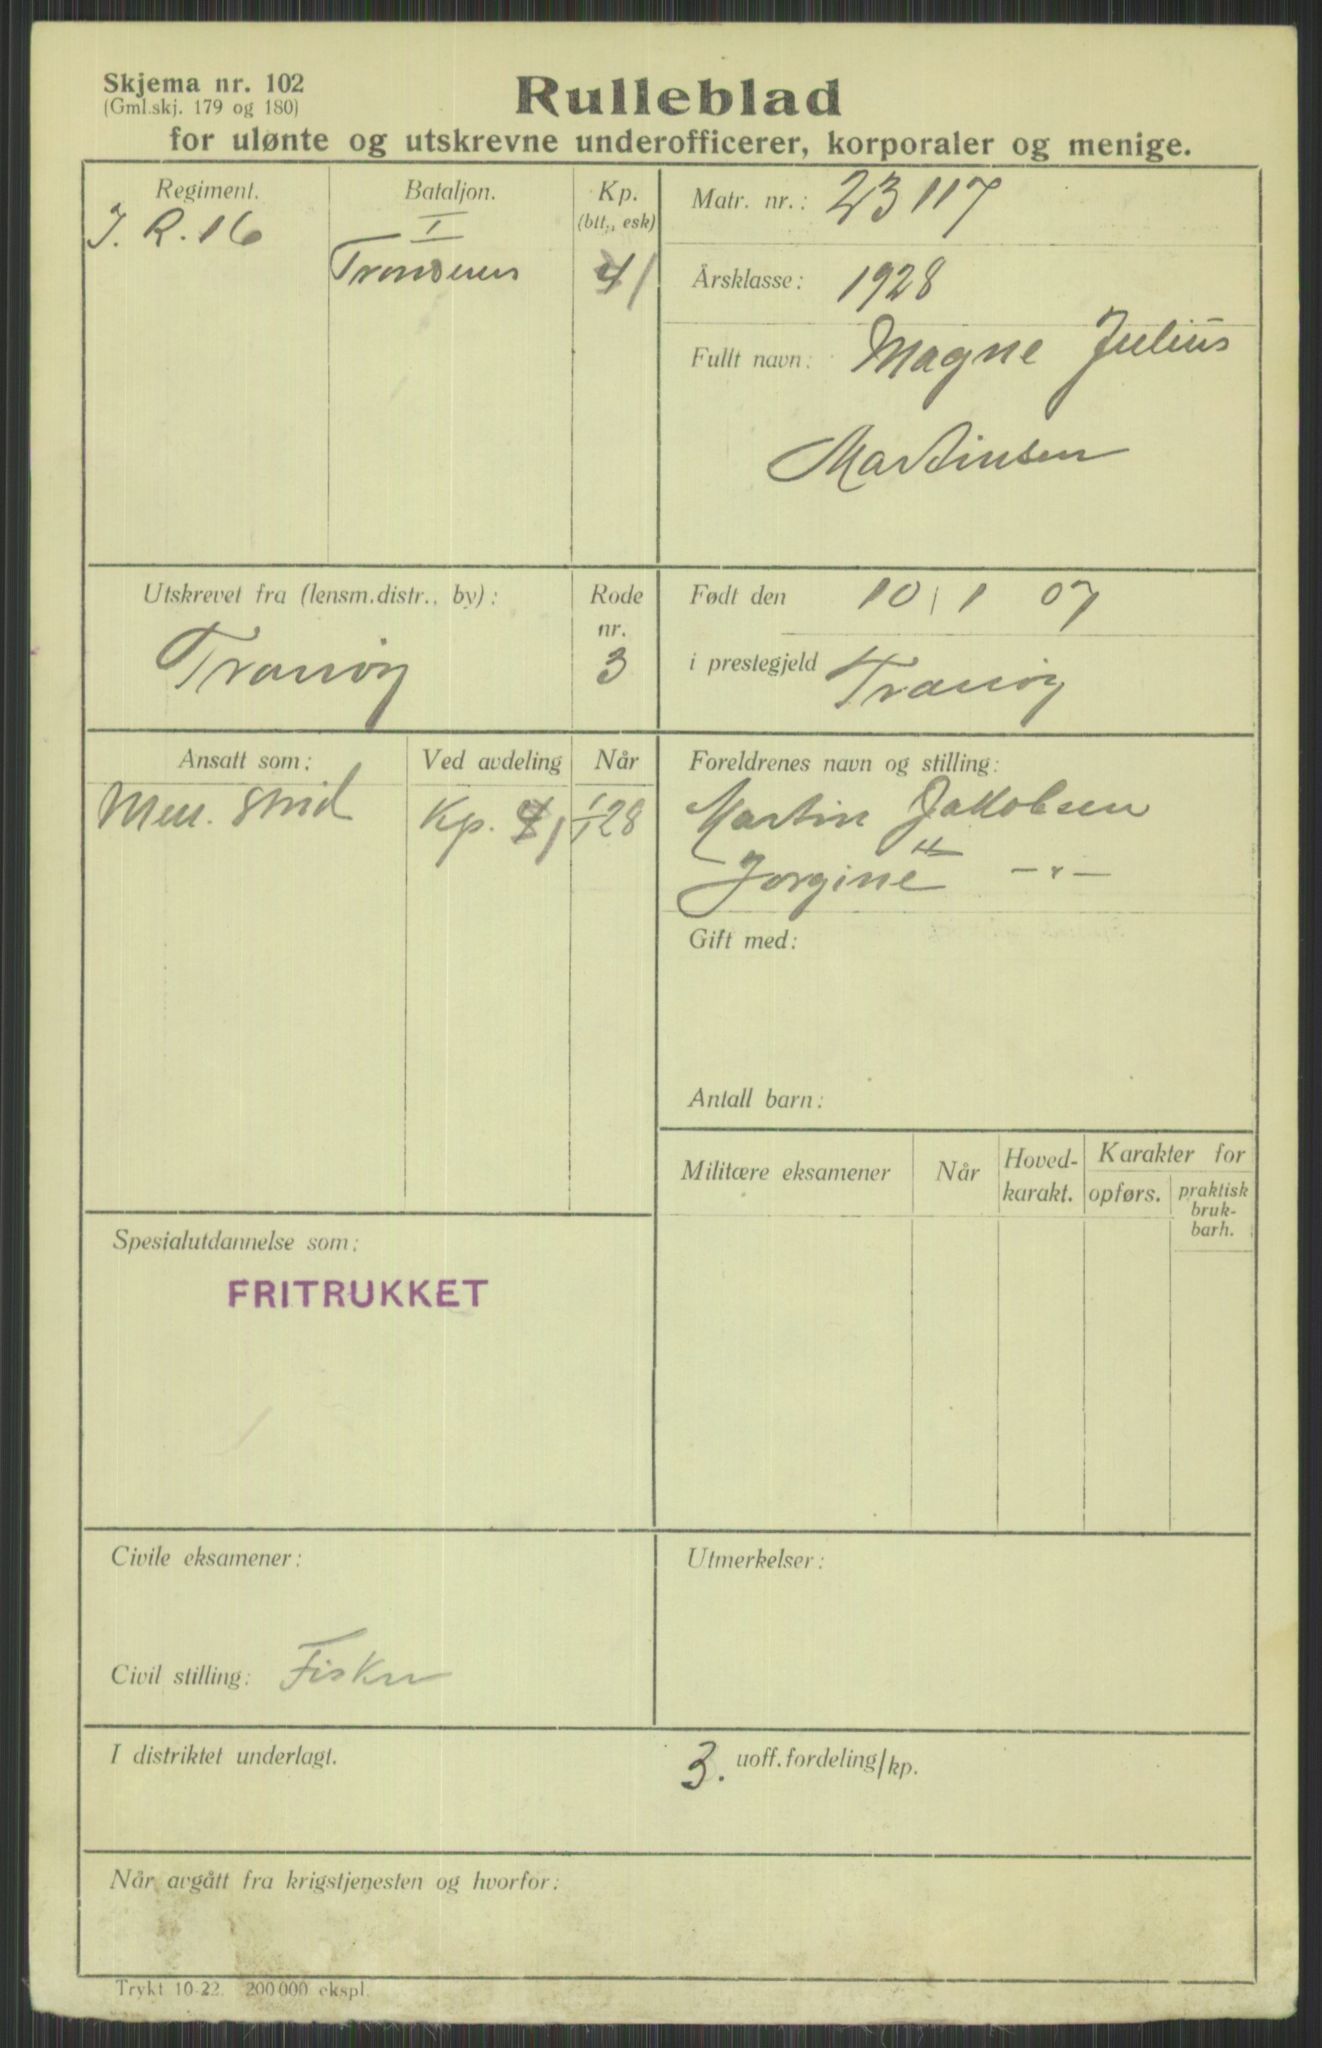 Skjema nr. 102
(Gml.skj. 179 og 180)
Rulleblad
for ulønte og utskrevne underofficerer, korporaler og menige.
Regiment.
J. R. 16
Bataljon.
I
Trondenes
Kp.
(btt., esk)
4 1
Matr. nr.: 23117
Årsklasse: 1928
Fullt navn: Magne Julius
Martinsen
Utskrevet fra (lensm.distr., by):
Tranöy
Rode
nr.
3
Født den 10 1 07
i prestegjeld Tranöy
Ansatt som:
Men. strid
Ved avdeling
Kp. 4 1
Når
1/1 28
Foreldrenes navn og stilling:
Martin Jakobsen
Jorgine — " —
Gift med:
Antall barn:
Militære eksamener
Når
Hoved-
karakt.
Karakter for
opførs.
praktisk
bruk-
barh.
Spesialutdannelse som:
FRITRUKKET
Civile eksamener:
Civil stilling: Fisker
Utmerkelser:
I distriktet underlagt.
3. uoff.fordeling/kp.
Når avgått fra krigstjenesten og hvorfor:
Trykt 10-22. 200 000 ekspl.